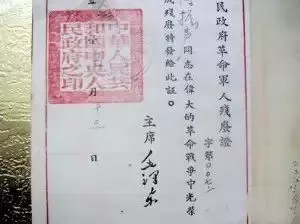 民政府革命軍人殘廢證
字第
同志在偉大的革命戰爭中光榮
成殘廢特發給此証。
中華人民共
和國中央人
民政府之印
主席 毛澤東
年 月 十三 日